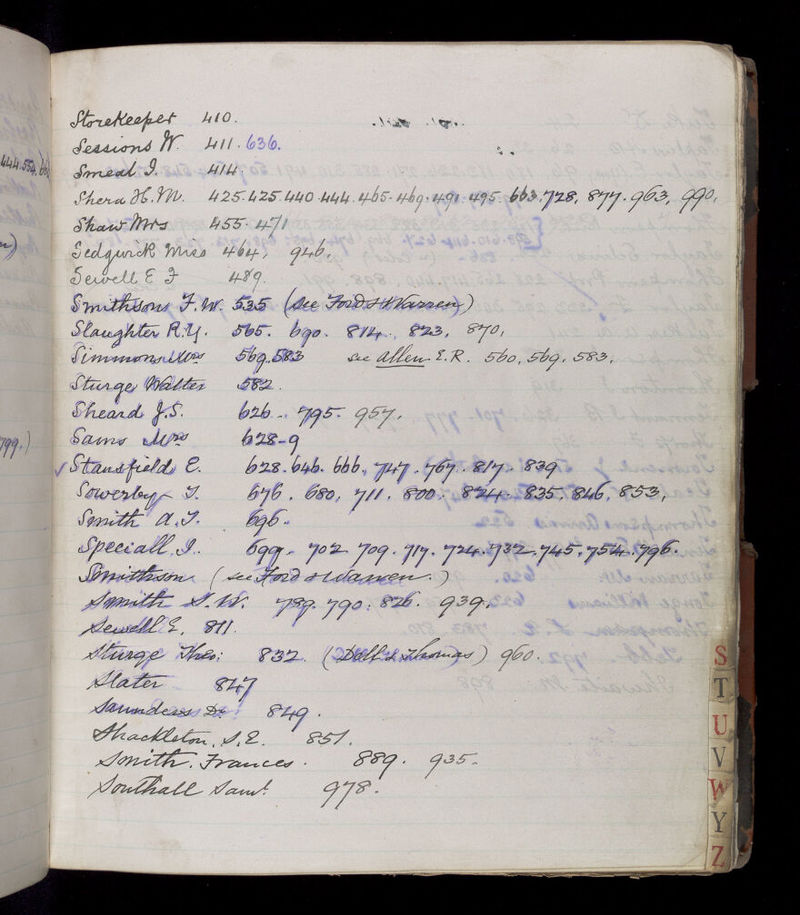 Storekeeper 410.
Sessions W. 411. 636.
Smeal I. 414
Shera H.M. 425.425.440.444.465.469.491.495.663.728, 877.963, 990.
Shaw Mrs 455.471
Sedgwick Miss 464, 946.
Sewell E F 489.
Smithsons F.W. 535 (see Ford & Warren)
Slaughter R.Y. 565. 690. 814. 823, 870,
Simmons Mrs 569.583 see Allen E.R. 560, 569, 583.
Sturge Walter 582.
Sheard J.S. 626. 795. 957.
Sams Mrs 628-9
Stansfield E. 628.646.666, 747.767.817.839
Sowerby T. 676. 680, 711. 800. 824. 835. 846, 853,
Smith A.T. 696.
Speciall J. 699. 702 709. 717. 724.732.745.754.796.
Smithson (see Ford & Warren.)
Smith S.W. 789. 790. 826. 939.
Sewell E. 811.
Sturge Theo: 832. (Doll & Thomas) 960.
Slater 847
Saunders Dr 849.
Shackleton, S.E. 851.
Smith. Frances. 889. 935.
Southall Saml. 978.
444.552.
799.)
S
T
U
V
W
Y
Z